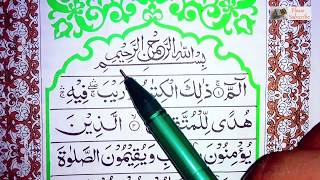 بِسْمِ اللّٰهِ الرَّحْمٰنِ الرَّحِيْمِ
الٓمّٓ ۚ ذٰلِكَ الْكِتٰبُ رَيْبَ ۛ فِيْهِ ۛ
هُدًى لِّلْمُتَّقِيْنَ الَّذِيْنَ
يُؤْمِنُوْنَ وَيُقِيْمُوْنَ الصَّلٰوةَ